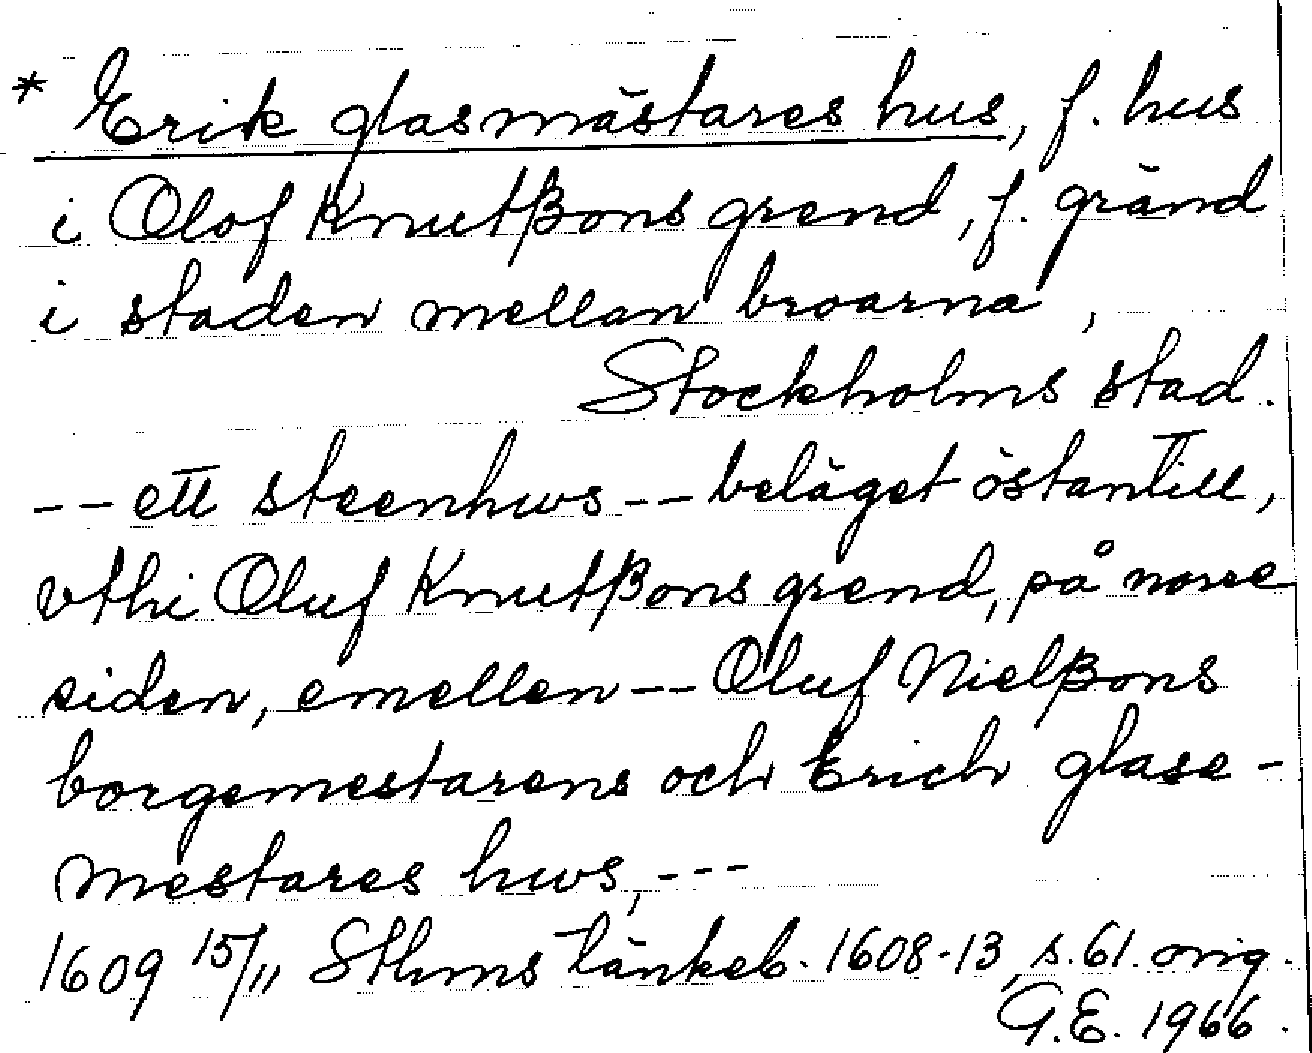 * Erik glasmästares hus, f. hus
i Olof Knutßons grend, f. gränd
i staden mellan broarna,
Stockholms stad.
-- ett steenhws -- beläget östantill,
vthi Oluf Knutßons grend, på norre
siden, emellen -- Oluf Nielßons
borgemestarens och Erich glase-
mestares hws, ---
1609 15/11 Sthms tänkeb. 1608-13, s. 61. orig.
G.E. 1966.